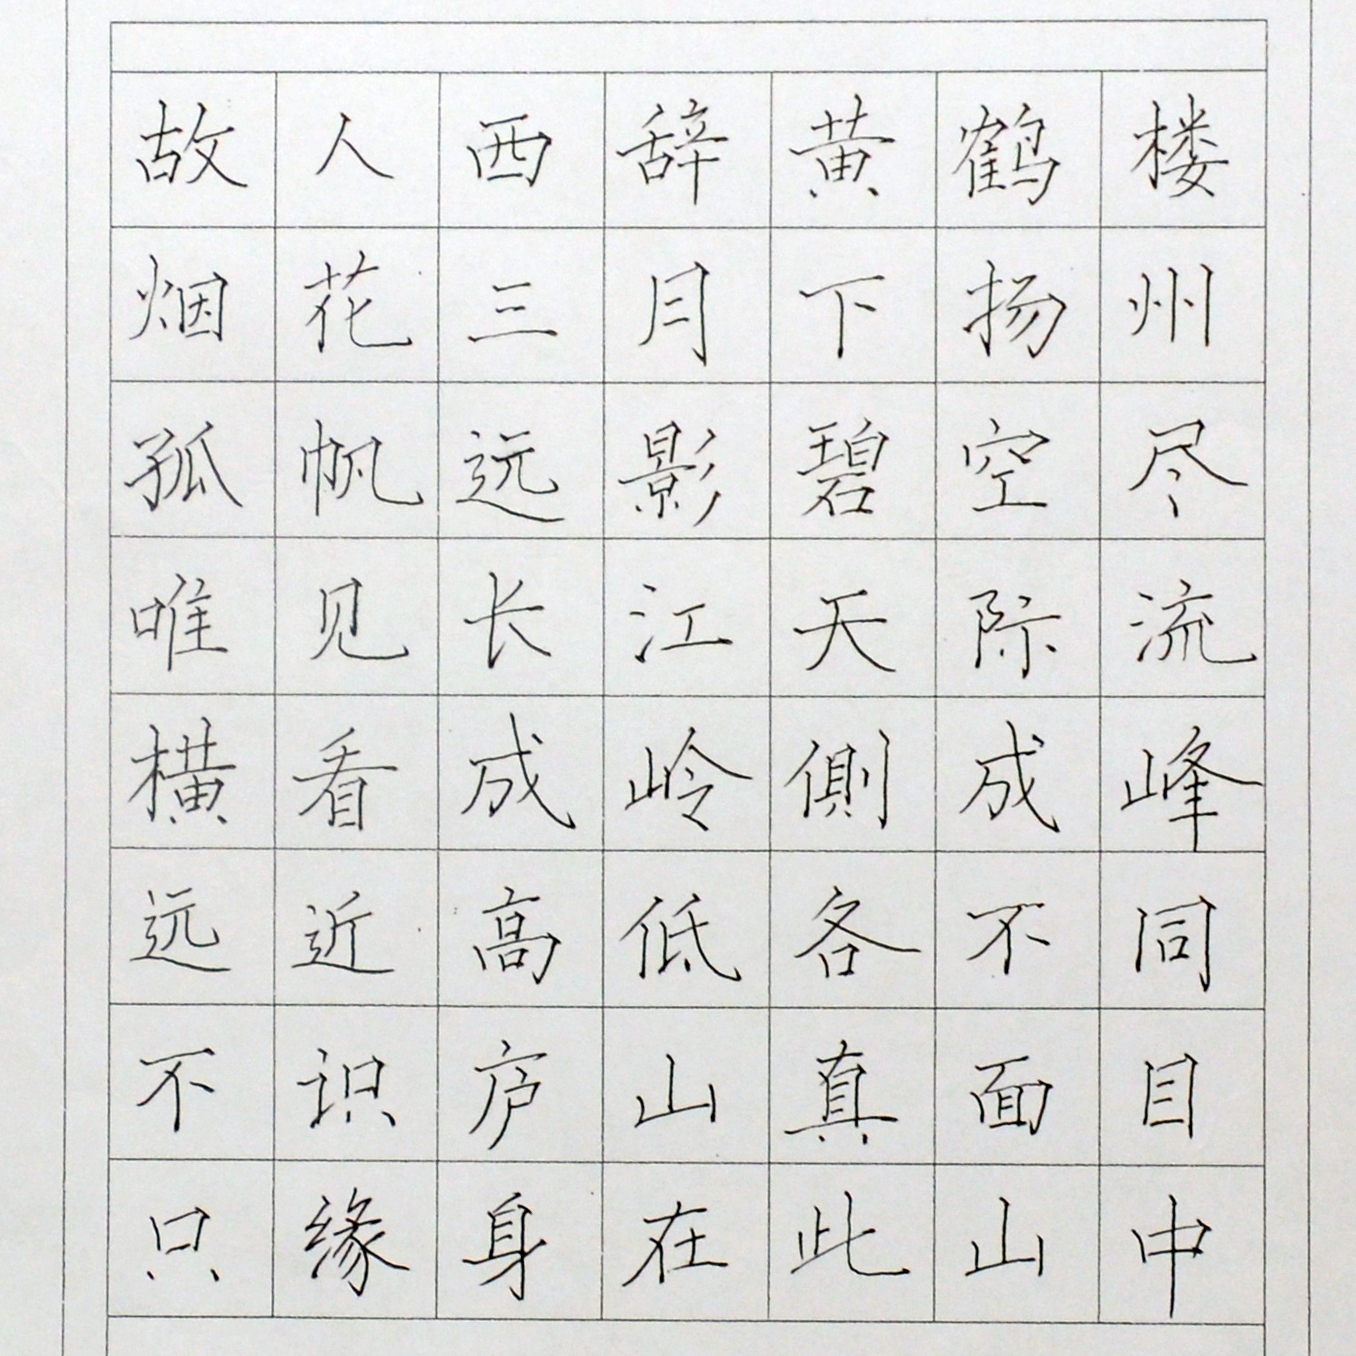 故人西辞黄鹤楼
烟花三月下扬州
孤帆远影碧空尽
唯见长江天际流
横看成岭側成峰
远近高低各不同
不识庐山真面目
只缘身在此山中